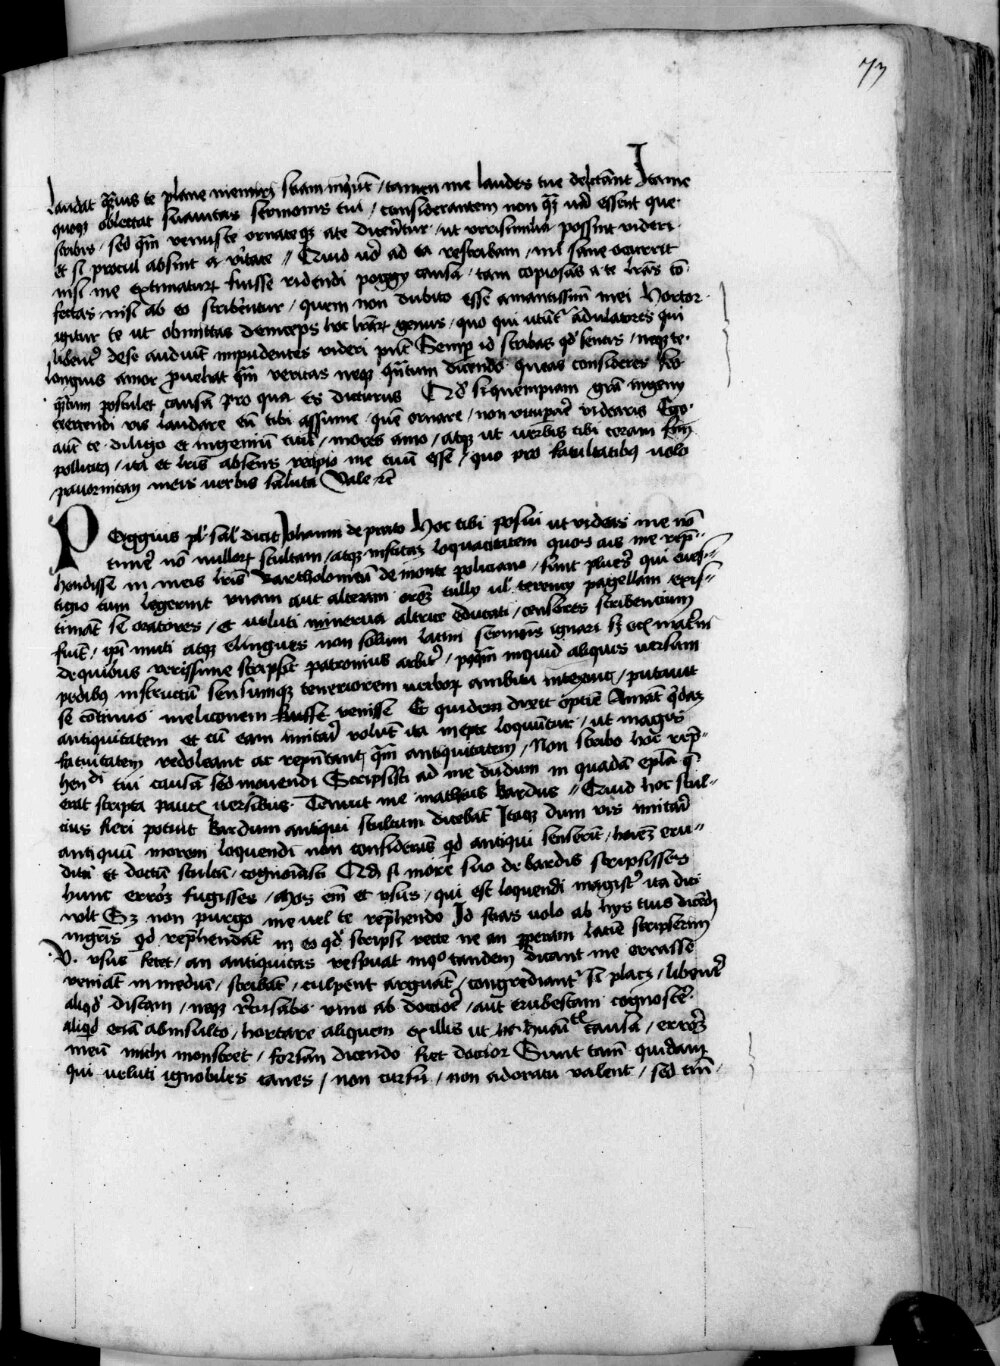 73
laudat q̄uis te plane mentiri sciam inquit / tamen me laudes tue delectant Itame
quoq; oblectat suauitas sermonis tui / considerantem non q̄ uera essent que
scribis / sed q̄m venuste ornateq; a te dicerentur / ut verisimilia possint videri
et si procul absint a ūitate // Quid uero ad ea rescribam / nil sane occurrit
nisi me extimaturum fuisse ridendi poggy causa / tam copiosas a te lr̄as cō-
fectas / nisi ab eo scriberentur / quem non dubito esse amantissim̄ mei Hortor
igitur te ut obmittas deinceps hoc lrārum genus / quo qui utunt̄ adulatores qui
libent̄ de se audiūt impudentes videri pn̄t Semp id scribas qd̄ sentis / neq; te
longius amor puehat q̄m veritas neq; q̄ntum dicendo queas consideres sed
q̄ntum postulet causa pro qua es dicturus Qd̄ si quempiam grā ingeny
exercendi vis laudare eū tibi assume / quē ornare / non vituparē videaris Ego
aūt te diligo et ingeniū tuū / mores amo / atq; ut uerbis tibi coram sum
pollicitus / ita et lr̄is absens recipio me tuū esse / quo pro facultatibus uolo
meis uerbis saluta Vale etc̄
POggius pl̄ sal̄ dicit Johanni de prato Hoc tibi posui ut videas me nō
timer̄ nō nullorum stultam / atq; inscitā loquacitatem quos ais me rep̄-
hendisse in meis lr̄is Bartholomeū de monte policiano / sunt plures qui
tigio cum legerint vnam aut alteram orōz tully ul̄ terency pagellam exis-
timāt se oratores / Et ueluti minerua altrice educati / censores scribencium
fiūt / ipi muti atq; elingues non solum latini sermonis ignari sz ecī matn̄i
de quibus verissime scripsit petronius arbit̄ / pq̄m inquid aliquis versam
pedibus instructū sensumq; teneriorem uerborum ambitu intexuit / putauit
se cōtinuo meliconem fuisse venisse Et quidem dixit optime Amāt q̄dam
antiquitatem et cū eam imitari volūt ita inepte loquūtur / ut magis
fatuitatem redoleant ac repn̄tant q̄m antiquitatem / Non scribo hoc rep̄-
hendi tui causa sed mouendi Scripsisti ad me dudum in quadā epl̄a q̄
erat scripta paucis versibus Tenuit me matheus bardus // Quid hoc stul-
cius fieri potuit bardum antiqui stultum dicebāt Itaq; dum vis imitari
antiquū morem loquendi non consideras qd antiqui senserīt / hoīez eru-
ditū et doctū stultū / cognoīasti Qd̄ si more suo de bardis scripsisses
hunc errorē fugisses / Mos em̄ et vsus / qui est loquendi magist̄ ita dici
uolt Sz non purgo me uel te rep̄hendo Id scias uolo ab hys tuis dicēdi
mgr̄is qd rep̄hendāt in eo qd̄ scripsi recte ne an pperam latine scripserim
V. vsus fecet / an antiquitas respuat inqo tandem dicant me errasse
veniāt in mediū / scribāt / culpent arguāt / congrediant̄ si placz / libent̄
aliqd̄ discam / neq; recusabo vinci ab doctioē / aut erubescam cognosce
aliqd eciā ab insulto / hortare aliquem ex illis ut huīt causa / errorē
meū michi monstret / forsan dicendo fiet doctior Sunt tam̄ quidam
qui ueluti ignobiles canes / non cursu / non adoratu valent / sed tm̄